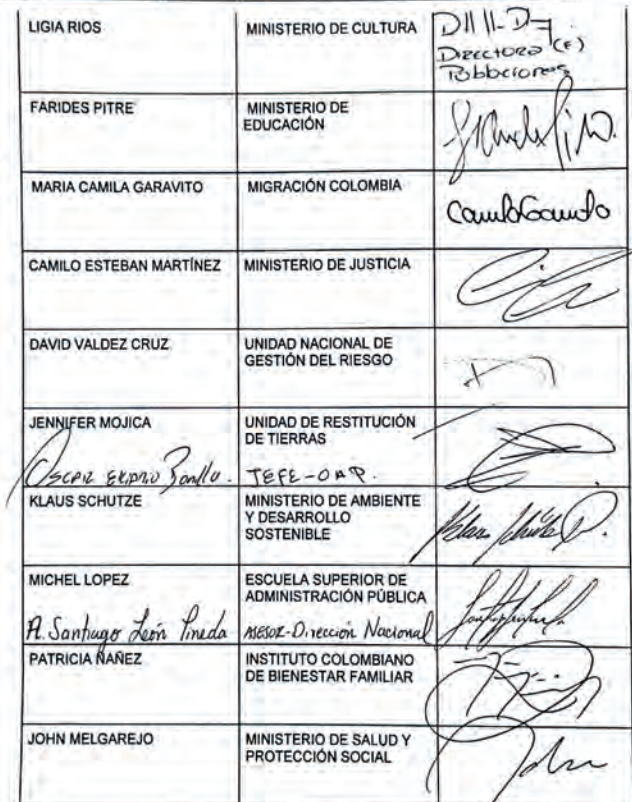 LIGIA RIOS
MINISTERIO DE CULTURA
Directora (E)
Poblaciones
FARIDES PITRE
MINISTERIO DE
EDUCACIÓN
MARIA CAMILA GARAVITO
MIGRACIÓN COLOMBIA
CAMILO ESTEBAN MARTÍNEZ
MINISTERIO DE JUSTICIA
DAVID VALDEZ CRUZ
UNIDAD NACIONAL DE
GESTIÓN DEL RIESGO
JENNIFER MOJICA
UNIDAD DE RESTITUCIÓN
DE TIERRAS
OSCAR Bonilla.
JEFE-OAP.
KLAUS SCHUTZE
MINISTERIO DE AMBIENTE
Y DESARROLLO
SOSTENIBLE
MICHEL LOPEZ
ESCUELA SUPERIOR DE
ADMINISTRACIÓN PÚBLICA
A. Santiago León Pineda
ASESOR-Dirección Nacional
PATRICIA ÑAÑEZ
INSTITUTO COLOMBIANO
DE BIENESTAR FAMILIAR
JOHN MELGAREJO
MINISTERIO DE SALUD Y
PROTECCIÓN SOCIAL